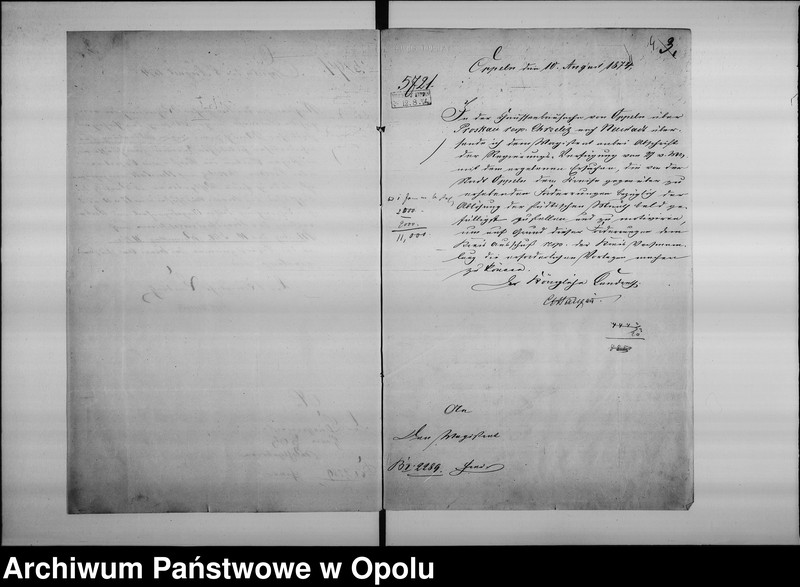 3.
Oppeln den 10. August 1874.
5721.
In der Chausseebausache von Oppeln über
Proskau resp. Chrzelitz nach Neustadt über-
sende ich dem Magistrat anbei Abschrift
der Regierungs-Verfügung vom
mit dem ergebenen Ersuchen, die von der
Stadt Oppeln dem Kreise gegenüber zu
erhebenden Forderungen bezüglich der
Ablösung der städtischen Mauth bald ge-
fälligst zu stellen und zu motiviren,
um auf Grund dieser Forderungen dem
Kreis Ausschuß resp. der Kreis Versamm-
lung die erforderlichen Vorlagen machen
zu können.
Der Königliche Landrath
An
Den Magistrat
2289. hier
11,000
Archiwum Państwowe w Opolu